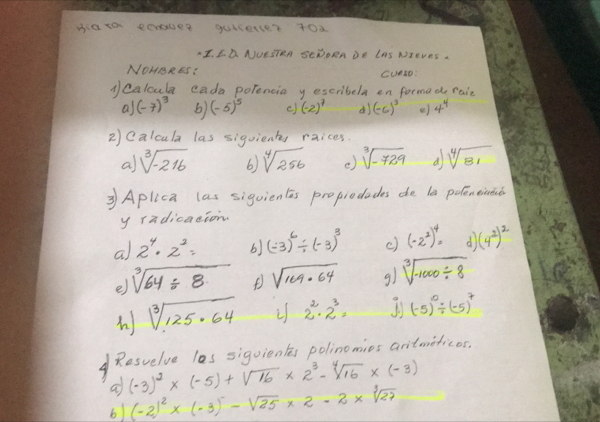 Kiara echavez gutierrez 702
I.E.D. NUESTRA SEÑORA DE LAS NIEVES.
NOMBRES: CURSO:
1) Calcula cada potencia y escribela en forma de raiz
a) (-7)³ b) (-5)⁵ c) (-2)³ d) (-6)³ e) 4⁴
2) Calcula las siguientes raices.
a) ∛-216 b) ∜256 c) ∛-729 d) ∜81
3) Aplica las siguientes propiedades de la potenciación
y radicación
a) 2⁴ · 2² = b) (-3)⁶ ÷ (-3)³ c) (-2²)⁴ = d) (4²)²
e) ∛64 ÷ 8 f) √169 · 64 g) ∛-1000 ÷ 8
h) ∛125 · 64 i) 2² · 2³ = j) (-5)⁰ ÷ (-5)⁷
4) Resuelve los siguientes polinomios aritméticos.
a) (-3)² x (-5) + √16 x 2³ - ∜16 x (-3)
b) (-2)² x (-3) - √25 x 2 - 2 x ∛27